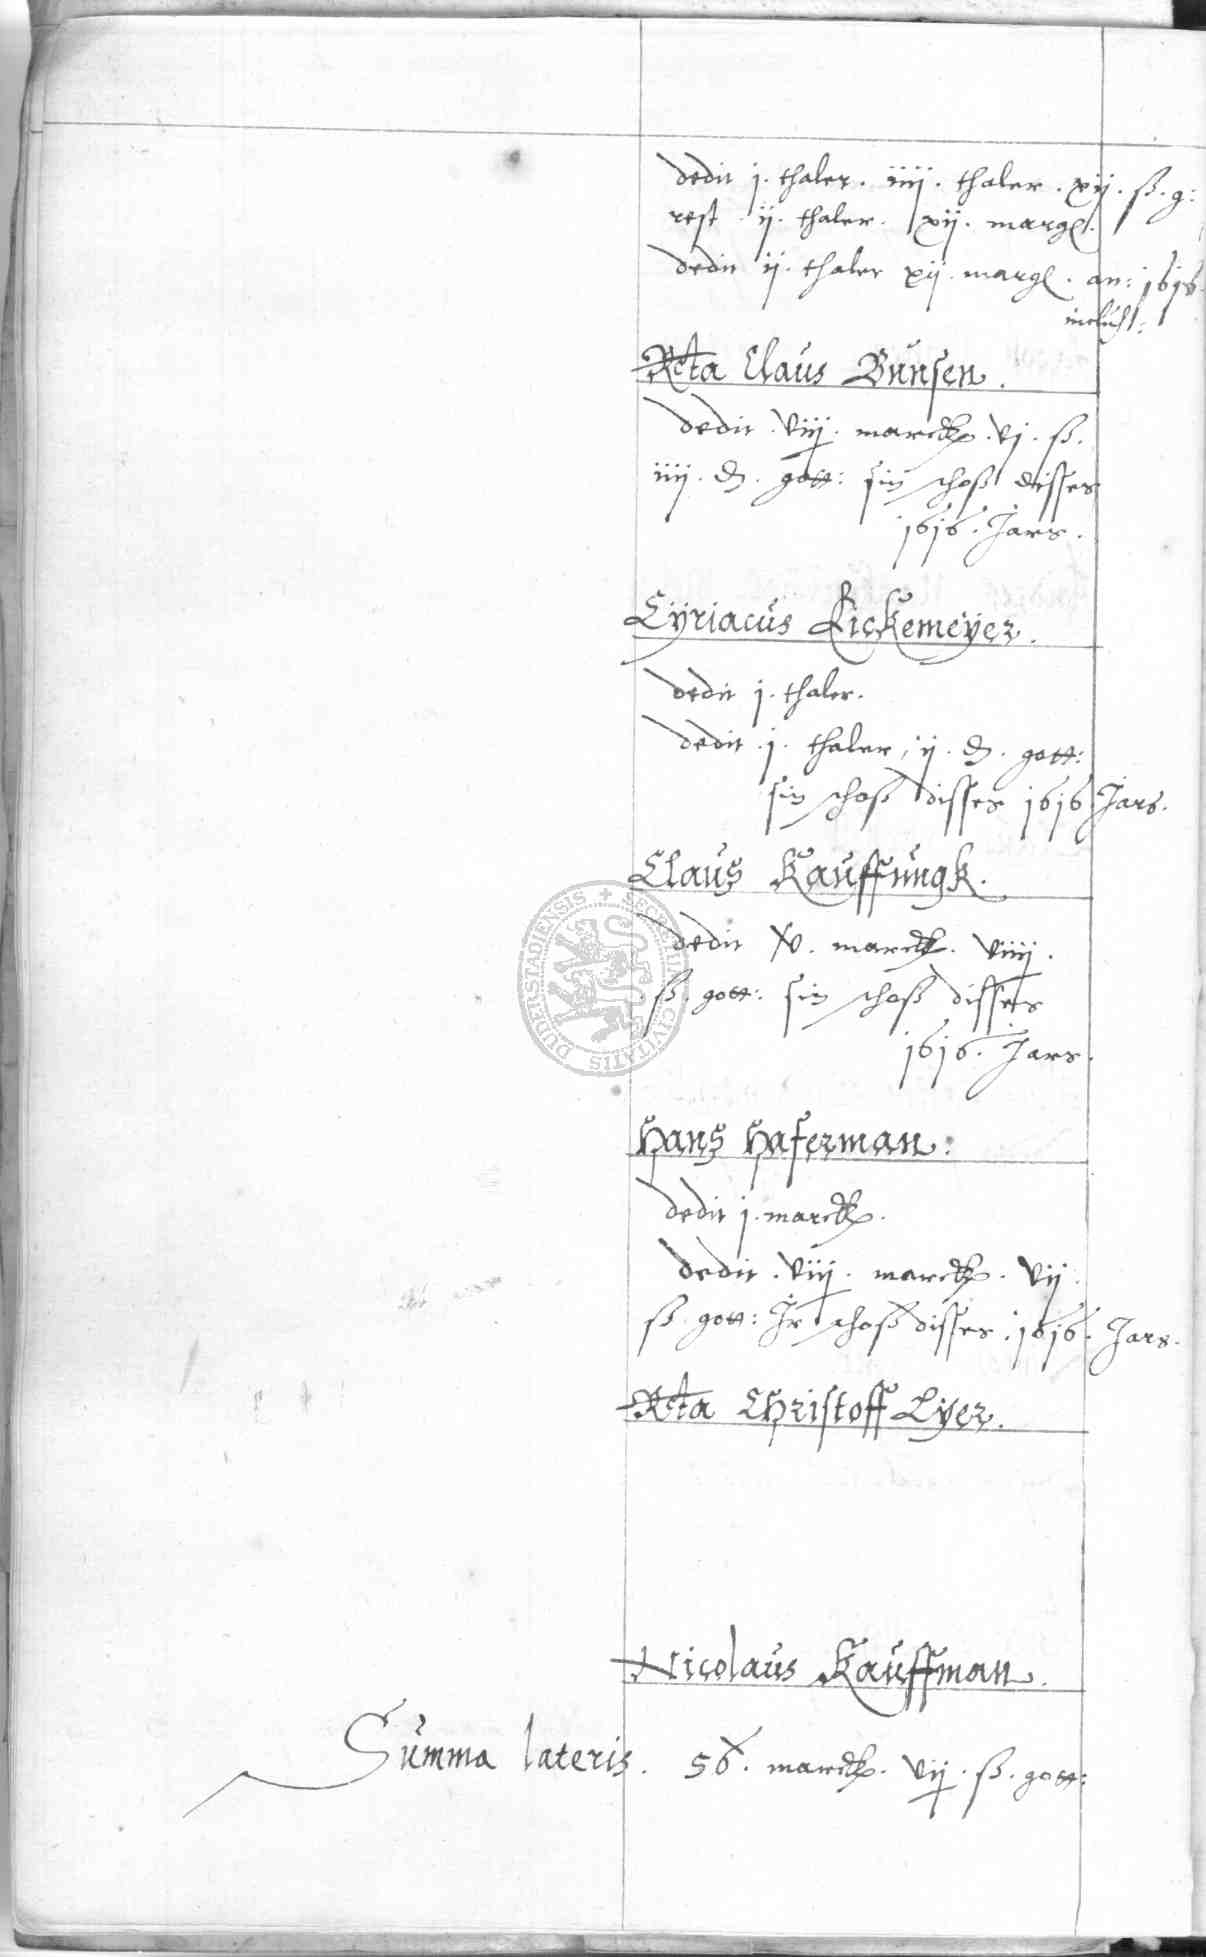 dedit j. thaler. iiij. thaler. xij. ß. g:
rest. ij. thaler. xij. margl.
dedit ij. thaler xij. margl. an: 1616
inclus:
Rcta Claus Bunsen.
dedit. viij. marck. vj. ß.
iiij. d. gott: sin schoß disses
1616. Jars.
Cyriacus Lickemeyer.
dedit j. thaler.
dedit. j. thaler, ij. d. gott:
sin schoß disses 1616 Jars.
Claus Kauffungk.
dedit xv. marck. viiij.
ß. gott: sin schoß disses
1616. Jars.
Hans Haferman.
dedit j. marck.
dedit. viij. marck. vij.
ß. gott: Jr schoß disses 1616. Jars.
Rcta Christoff Lyer.
Nicolaus Kauffman.
Summa lateris. 56. marck. vij. ß. gott:
SECRETU CIVITATIS DUDERSTADIENSIS